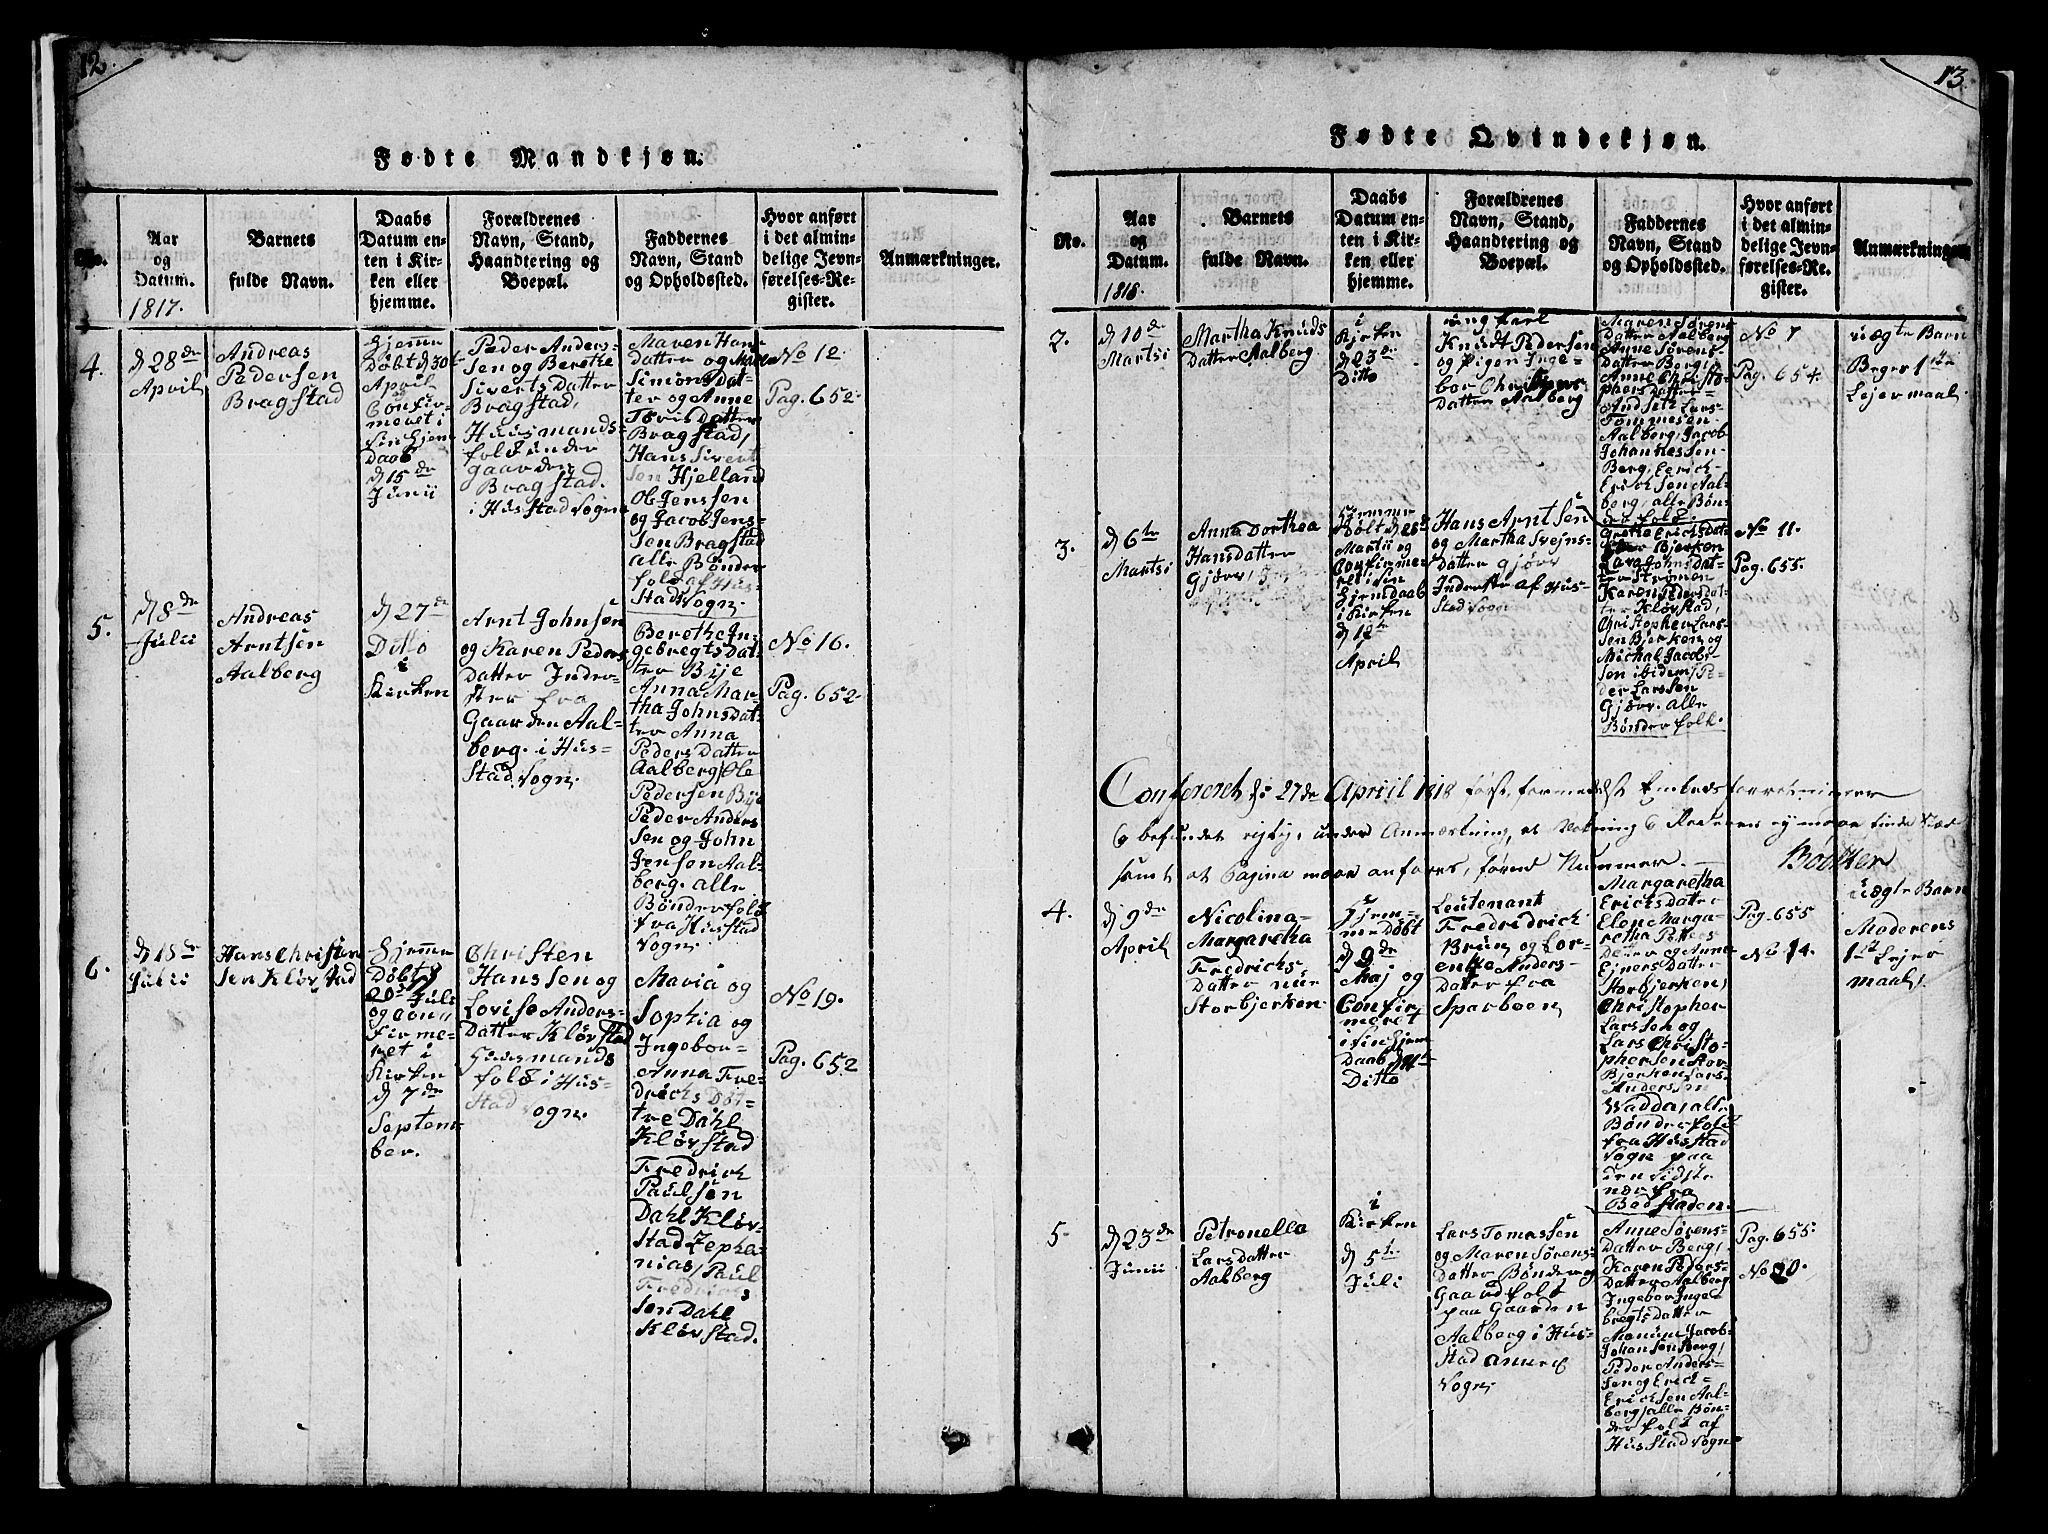 12.
Fødte Mandkjøn.
No.
Aar
og
Datum.
1817.
Barnets
fulde Navn.
Daabs
Datum en-
ten i Kir-
ken eller
hjemme.
Forældrenes
Navn, Stand,
Haandtering og
Boepæl.
Faddernes
Navn, Stand
og Opholdssted.
Hvor anført
i det almin-
delige Jevn-
førelses-Re-
gister.
Anmærkninger.
4.
d 28de
April
Andreas
Pedersen
Bragstad
Hjemme
Døbt d 30t
April
og
Confir-
meret i
sin hjem
Daab
d 15de
Junii
Peder Anders-
Sen og Berethe
Siverts Datter
Bragstad,
Huusmands-
folk under
gaarden
Bragstad.
i Husstad Sogn
Maren Hans
datter og
Simons Dat-
ter og Anne
Toris Datter
Bragstad,
Hans Sivert
Sen Hjelland
Ol Jenssen
og Jacob Jens-
Sen Bragstad
alle Bønder
folk af Hus-
Stads Sogn.
No 12.
Pag. 652.
5.
d 8de
Julii
Andreas
Arntsen
Aalberg
d 27de
Dito
i
Kirken
Arnt Johnsen
og Karen Peders
datter Inder-
ster fra
Gaarden Aal-
berg. i Hus-
Stad Sogn.
Berethe In-
gebregts Dat-
ter Bije
Anna Mar-
tha Johnsdat-
ter Anna
Peders Datter
Aalberg Ole
Pedersen Bije
Peder Anders
Sen og John
Jensen Aal-
berg. alle
Bønderfolk
fra Husstad
Sogn.
No 16.
Pag. 652.
6.
d 18de
Julii
Hans Christen
Sen Kløvstad
Hjemme
Døbt d
20de Juli
og Con-
firme-
ret i
Kirken
d 7de
Septem-
ber.
Christen
Hanssen og
Lovise Anders-
Datter Kløvstad
Huusmands
folk i Hus-
Stad Sogn.
Maria og
Sophia og
Ingebor-
Anna Fre-
drichs Døt-
tre Dahl
Kløvstad
Fredrich
Paulsen
Dahl Kløv-
Stad Zepha-
nias, Paul
Fredrichs
Sen Dahl
Kløvstad.
No 19.
Pag. 652
13.
Fødte Qvindekjøn.
No.
Aar
og
Datum.
1818.
Barnets
fulde Navn.
Daabs
Datum en-
ten i Kir-
ken eller
hjemme.
Forældrenes
Navn, Stand,
Haandtering og
Boepæl.
Faddernes
Navn, Stand
og Opholdssted.
Hvor anført
i det almin-
delige Jevn-
førelses-Re-
gister.
Anmærkninger.
2.
d 10de
Martsi
Martha Knuds
Datter Aalberg
i
Kirken
d 23de
Ditto
ung karl
Knudt Pedersen
og Pigen Inge-
bor Christophers
Datter Aalberg
Maren Sørens
Datter Aalberg
Anne Sørens
Datter Berg,
Anne Christo-
phers Datter-
Lars-
Tommesen
Aalberg, Jacob
Johannessen
Berg, Eerich-
Ericksen Aal-
berg, alle Bøn-
der folk.
No 7
Pag. 654.
uægte Barn
Beges 1ste
Lejermaal
3.
d 6te
Martsi
Anna Dorthea
Hansdatter
Gjørv,
Hjemme
Døbt d 25de
Martii og
Confirme-
ret i sin
Hjemdaab
i Kirken
d 12te
April
Hans Arntsen
og Martha Svejns-
Datter Gjørv
Inderste af Hus-
Stad Sogn
Grethe Erichsdat-
ter Bjerken
Sara Johnsdat-
ter Strømen
Karen Pedersdat-
ter Kløvstad,
Christopher Lars-
Sen Bjerken og
Michal Jacob-
Sen ibidem, Pe-
der Larssen
Gjørv. alle
Bønderfolk.
No 11.
Pag. 655.
Confereret d: 27de Apriil 1818 først, formedelst Embedsforretninger
og befundet rigtig, under Anmærkning, at
samt at Pagina maae anføres, førend Nummer.
4.
d 9de
April
Nicolina-
Margaretha
Fredrichs
Datter
Storbjerken
Hjem-
me Døbt
d 9de
Maj og
Confir-
meret
i sin hjem
Daab
Ditto
Leutenant
Fredridrich
Brun og Lor-
entze Anders-
Datter fra
Sparboen
Margaretha
Erichs Datter
Elen Marga-
retha Petters-
Datter og Anne
Ejners Datter
Storbjerken,
Christopher
Larssen og
Lars Christo-
phersen Stor-
Bjerken Lars-
Anderssen
Wadda, alle
Bønderfolk
fra Husstad
Sogn paa
den sidste
nær fra
Badstaden.
Pag. 655
No 14.
uægte Barn
Moderens
1ste Lejer
maal
5
d 23de
Junii
Petronella
Larsdatter
Aalberg
i
Kirken
d 5te
Juli
Lars Tomassen
og Maren Sørens-
Datter Bønder og
Gaardfolk
paa Gaarden
Aalberg i Hus-
Stad annex
Sogn
Anne Sørens-
Datter Berg,
Karen Peders-
Datter Aalberg
Ingebor Inge-
bregtsdatter
Jacob-
Johansen Berg,
Peder Anders-
Sen og Erick-
Ericksen Aal-
berg, alle Bøn-
derfolk af
Husstad Sogn
Pag. 655.
No 20.